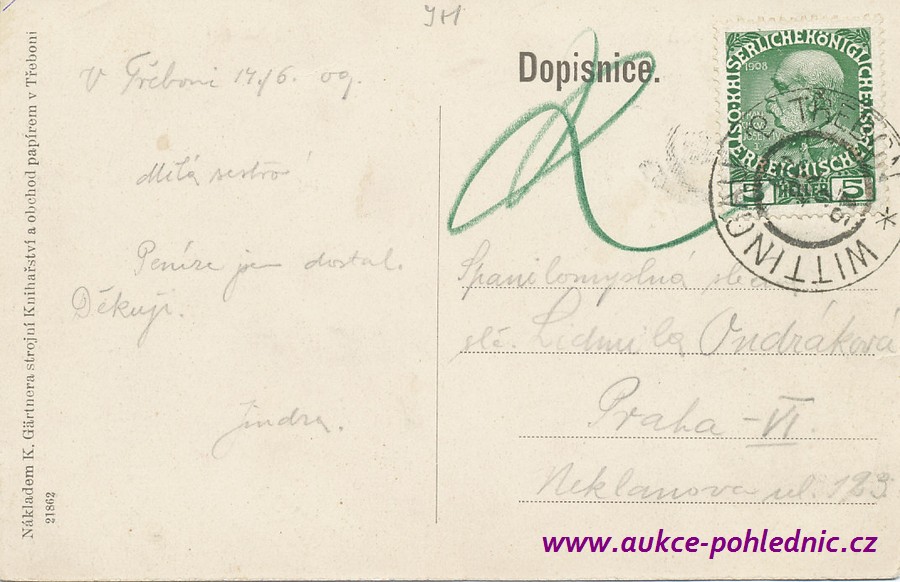 JH
V Třeboni 17/6. 09.
Milá sestro!
Peníze jsem dostal.
Děkuji.
Jindra.
Nákladem K. Gärtnera strojní Knihařství a obchod papírem v Třeboni
21862
Dopisnice.
KAISERLICHE KÖNIGLICHE ÖSTERREICHISCHE
1908
5 HELLER 5
TŘEBOŇ * WITTINGAU
Spanilomyslná
slč. Lidmila Ondráková
Praha - VI.
Neklanova ul. 123
www.aukce-pohlednic.cz